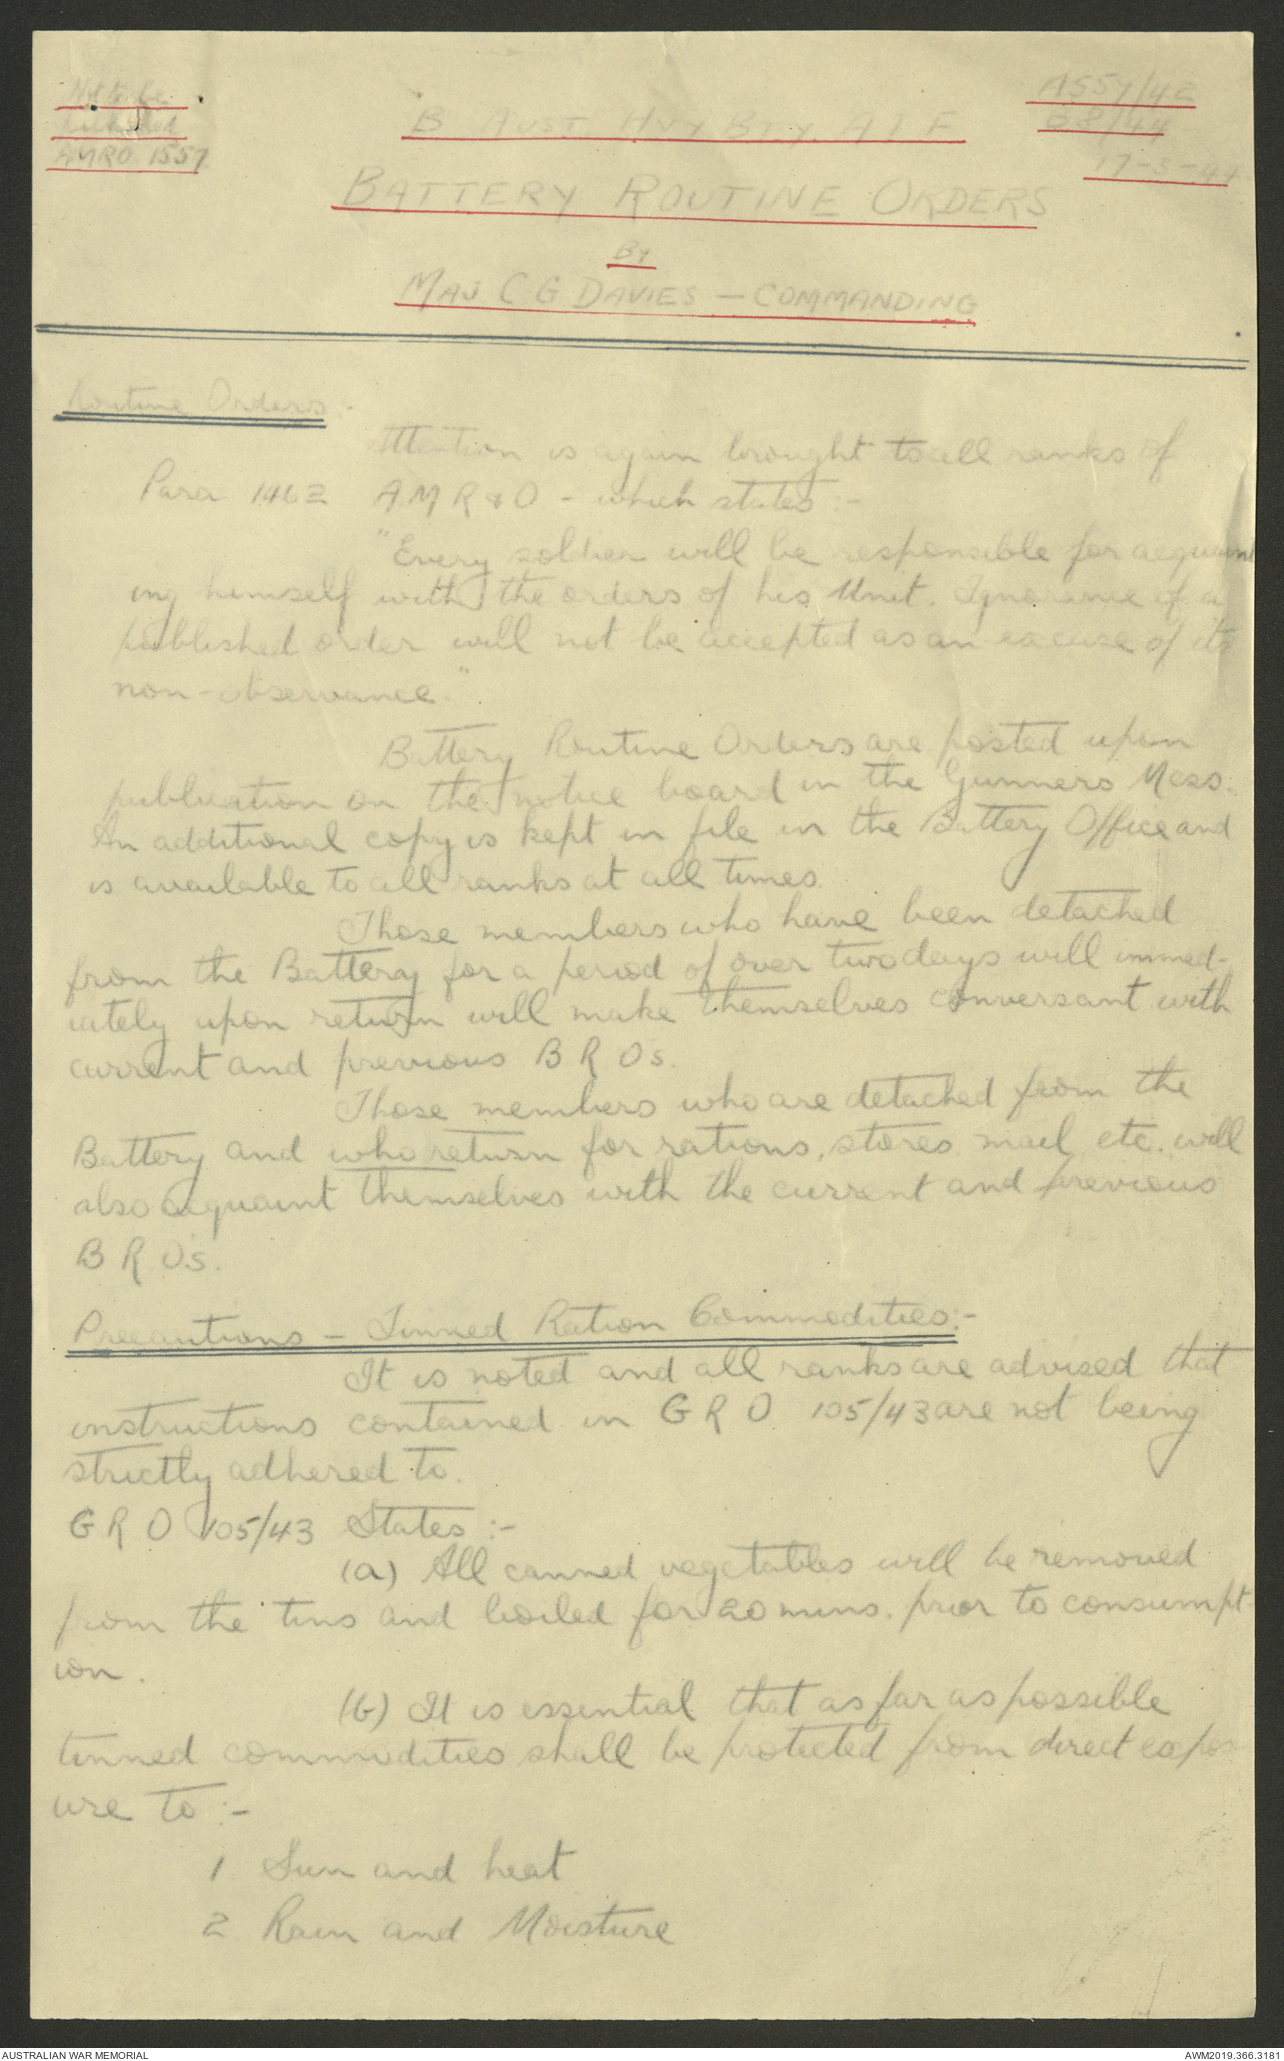 Not to be
published
AMRO 1557
A557/42
68/44
17-3-44
B AUST HVY BTY. A I F
BATTERY ROUTINE ORDERS
BY
MAJ C G DAVIES — COMMANDING
Routine Orders :-
Attention is again brought to all ranks of
Para 1462 A M R & O - which states :-
"Every soldier will be responsible for acquaint
ing himself with the orders of his Unit. Ignorance of a
published order will not be accepted as an excuse of its
non-observance."
Battery Routine Orders are posted upon
publication on the notice board in the Gunners Mess.
An additional copy is kept in file in the Battery Office and
is available to all ranks at all times.
Those members who have been detached
from the Battery for a period of over two days will immed-
iately upon return will make themselves conversant with
current and previous B R Os.
Those members who are detached from the
Battery and who return for rations, stores, mail, etc. will
also acquaint themselves with the current and previous
B R Os.
Precautions — Tinned Ration Commodities:-
It is noted and all ranks are advised that
instructions contained in G R O 105/43 are not being
strictly adhered to.
G R O 105/43 States :-
(a) All canned vegetables will be removed
from the tins and boiled for 20 mins. prior to consumpt-
ion.
(b) It is essential that as far as possible
tinned commodities shall be protected from direct expos
ure to :-
1 Sun and heat
2 Rain and Moisture
AUSTRALIAN WAR MEMORIAL
AWM2019.366.3181